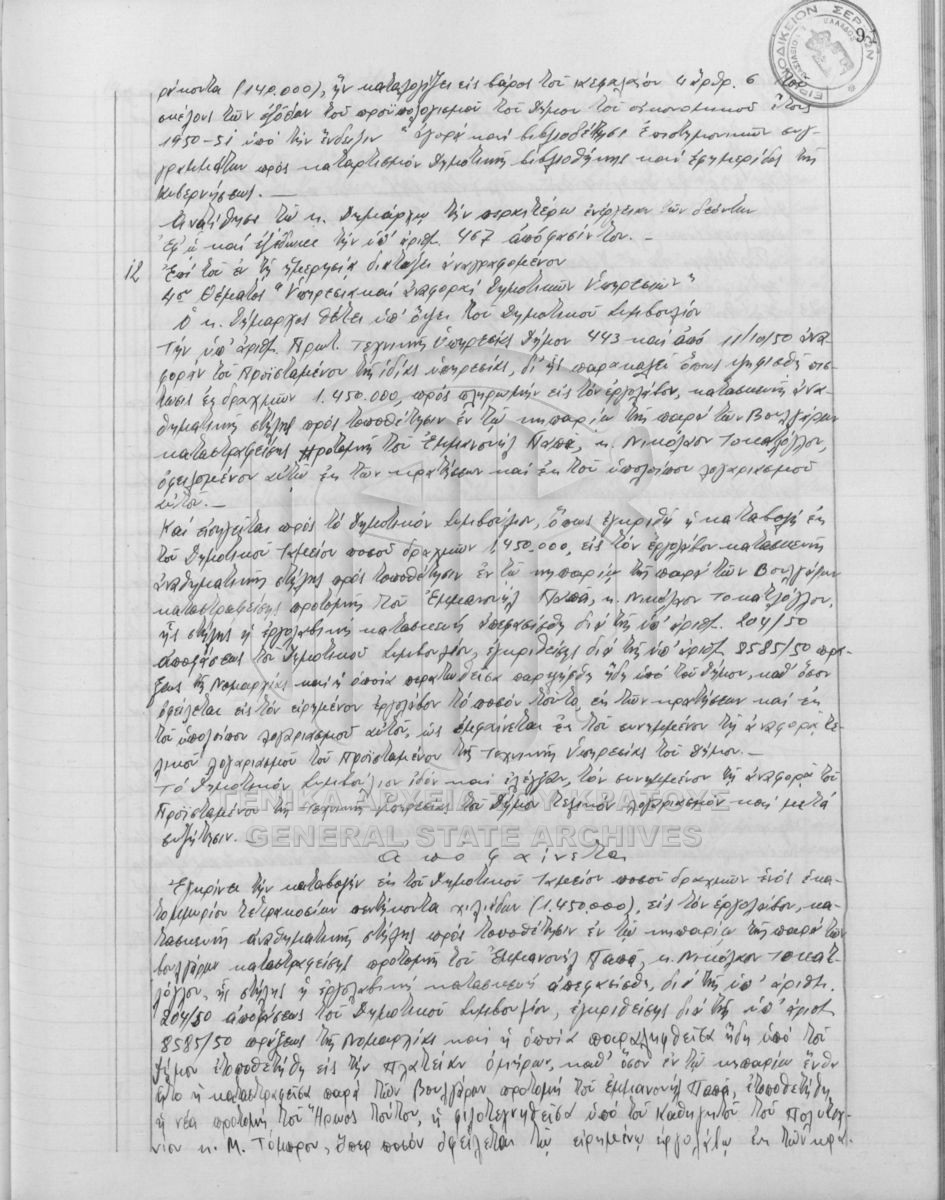 ΕΙΡΗΝΟΔΙΚΕΙΟΝ ΣΕΡΡΩΝ
9
ρῶντα (140.000), ἥν καταλογίζει εἰς βάρος τοῦ κεφαλαίου 4 ἄρθρ. 6 τοῦ
σκέλους τῶν ἐξόδων τοῦ προϋπολογισμοῦ τοῦ Δήμου τοῦ οἰκονομικοῦ ἔτους
1950-51 ὑπό τήν ἔνδειξιν "ἀγορά καί βιβλιοδέτησις ἐπιστημονικῶν συγ-
γραμμάτων πρός καταρτισμόν Δημοτικῆς βιβλιοθήκης καί ἐφημερίδος τῆς
Κυβερνήσεως. —
Ἀνατίθησι τῷ κ. Δημάρχῳ τήν περαιτέρω ἐνέργειαν τῶν δεόντων
Ἐφ' ᾧ καί ἐξέδωκε τήν ὑπ' ἀριθ. 467 ἀπόφασίν του. —
12 Ἐπί τοῦ ἐν τῇ ἡμερησίᾳ διατάξει ἀναγραφομένου
4ου θέματος "Ὑπηρεσιακαί ἀναφοραί Δημοτικῶν Ὑπηρεσιῶν"
Ὁ κ. Δήμαρχος θέτει ὑπ' ὄψει τοῦ Δημοτικοῦ Συμβουλίου
τήν ὑπ' ἀριθ. Πρωτ. Τεχνικῆς Ὑπηρεσίας Δήμου 443 καί ἀπό 11/10/50 ἀνα-
φοράν τοῦ Προϊσταμένου τῆς ἰδίας ὑπηρεσίας, δι' ἧς παρακαλεῖ ὅπως ψηφισθῇ πί-
στωσις ἐκ δραχμῶν 1.450.000, πρός πληρωμήν εἰς τόν ἐργολάβον, κατασκευῆς ἀνα-
θηματικῆς στήλης πρός τοποθέτησιν ἐν τῷ κηπαρίῳ τῆς παρά τῶν Βουλγάρων
καταστραφείσης προτομῆς τοῦ Ἐμμανουήλ Παπᾶ, κ. Νικόλαον Τοκατλόγλου,
ὀφειλομένου αὐτῷ ἐκ τῶν κρατήσεων καί ἐκ τοῦ ὑπολοίπου λογαριασμοῦ
αὐτοῦ. —
Καί εἰσηγεῖται πρός τό Δημοτικόν Συμβούλιον, ὅπως ἐγκριθῇ ἡ καταβολή ἐκ
τοῦ Δημοτικοῦ Ταμείου ποσοῦ δραχμῶν 1.450.000, εἰς τόν ἐργολάβον κατασκευῆς
ἀναθηματικῆς στήλης πρός τοποθέτησιν ἐν τῷ κηπαρίῳ τῆς παρά τῶν Βουλγάρων
καταστραφείσης προτομῆς τοῦ Ἐμμανουήλ Παπᾶ, κ. Νικόλαον Τοκατλόγλου,
ἧς στήλης ἡ ἐργολαβική κατασκευή ἀπεφασίσθη διά τῆς ὑπ' ἀριθ. 204/50
ἀποφάσεως τοῦ Δημοτικοῦ Συμβουλίου, ἐγκριθείσης διά τῆς ὑπ' ἀριθ. 8585/50 πρά-
ξεως τῆς Νομαρχίας καί ἡ ὁποία περατωθεῖσα παρελήφθη ἤδη ὑπό τοῦ Δήμου, καθ' ὅσον
ὀφείλεται εἰς τόν εἰρημένον ἐργολάβον τό ποσόν τοῦτο, ἐκ τῶν κρατήσεων καί ἐκ
τοῦ ὑπολοίπου λογαριασμοῦ αὐτοῦ, ὡς ἐμφαίνεται ἐκ τοῦ συνημμένου τῇ ἀναφορᾷ τε-
λικοῦ λογαριασμοῦ τοῦ Προϊσταμένου τῆς Τεχνικῆς Ὑπηρεσίας τοῦ Δήμου. —
Τό Δημοτικόν Συμβούλιον ἰδόν καί ἐλέγξαν, τόν συνημμένον τῇ ἀναφορᾷ τοῦ
Προϊσταμένου τῆς Τεχνικῆς Ὑπηρεσίας τοῦ Δήμου τελικόν λογαριασμόν καί μετά
συζήτησιν. —
ΓΕΝΙΚΑ ΑΡΧΕΙΑ ΤΟΥ ΚΡΑΤΟΥΣ
GENERAL STATE ARCHIVES
ἀποφαίνεται
Ἐγκρίνει τήν καταβολήν ἐκ τοῦ Δημοτικοῦ Ταμείου ποσοῦ δραχμῶν ἑνός ἑκα-
τομμυρίου τετρακοσίων πεντήκοντα χιλιάδων (1.450.000), εἰς τόν ἐργολάβον, κα-
τασκευῆς ἀναθηματικῆς στήλης πρός τοποθέτησιν ἐν τῷ κηπαρίῳ τῆς παρά τῶν
Βουλγάρων καταστραφείσης προτομῆς τοῦ Ἐμμανουήλ Παπᾶ, κ. Νικόλαον Τοκατ-
λόγλου, ἧς στήλης ἡ ἐργολαβική κατασκευή ἀπεφασίσθη διά τῆς ὑπ' ἀριθ.
204/50 ἀποφάσεως τοῦ Δημοτικοῦ Συμβουλίου, ἐγκριθείσης διά τῆς ὑπ' ἀριθ.
8585/50 πράξεως τῆς Νομαρχίας καί ἡ ὁποία παραληφθεῖσα ἤδη ὑπό τοῦ
Δήμου ἐτοποθετήθη εἰς τήν πλατεῖαν Ὁμήρων, καθ' ὅσον ἐν τῷ κηπαρίῳ ἔνθα
ἦτο ἡ καταστραφεῖσα παρά τῶν Βουλγάρων προτομή τοῦ Ἐμμανουήλ Παπᾶ, ἐτοποθετήθη
ἡ νέα προτομή τοῦ Ἥρωος τούτου, ἡ φιλοτεχνηθεῖσα ὑπό τοῦ Καθηγητοῦ τοῦ Πολυτεχ-
νίου κ. Μ. Τόμπρου, ὅπερ ποσόν ὀφείλεται τῷ εἰρημένῳ ἐργολάβῳ ἐκ τῶν κρα-